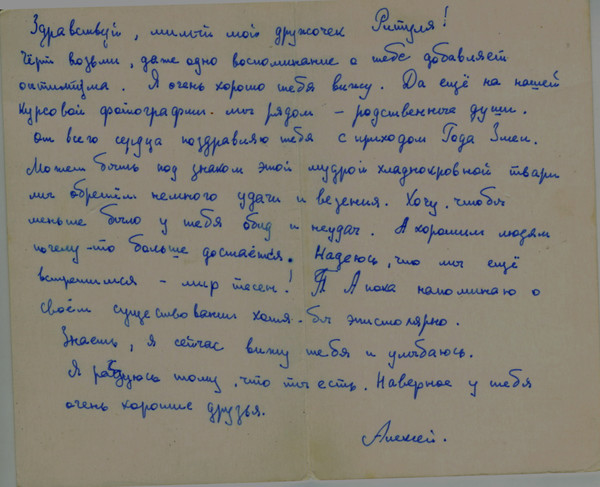 Здравствуй, милый мой дружочек Ритуля!
Чёрт возьми, даже одно воспоминание о тебе добавляет
оптимизма. Я очень хорошо тебя вижу. Да ещё на нашей
курсовой фотографии мы рядом – родственные души.
От всего сердца поздравляю тебя с приходом Года Змеи.
Может быть под знаком этой мудрой хладнокровной твари
мы обретём немного удачи и везения. Хочу, чтобы
меньше было у тебя обид и неудач. А хорошим людям
почему-то больше достаётся. Надеюсь, что мы ещё
встретимся – мир тесен! А пока напоминаю о
своём существовании хотя-бы эпистолярно.
Знаешь, я сейчас вижу тебя и улыбаюсь.
Я радуюсь тому, что ты есть. Наверное у тебя
очень хорошие друзья.
Алексей.